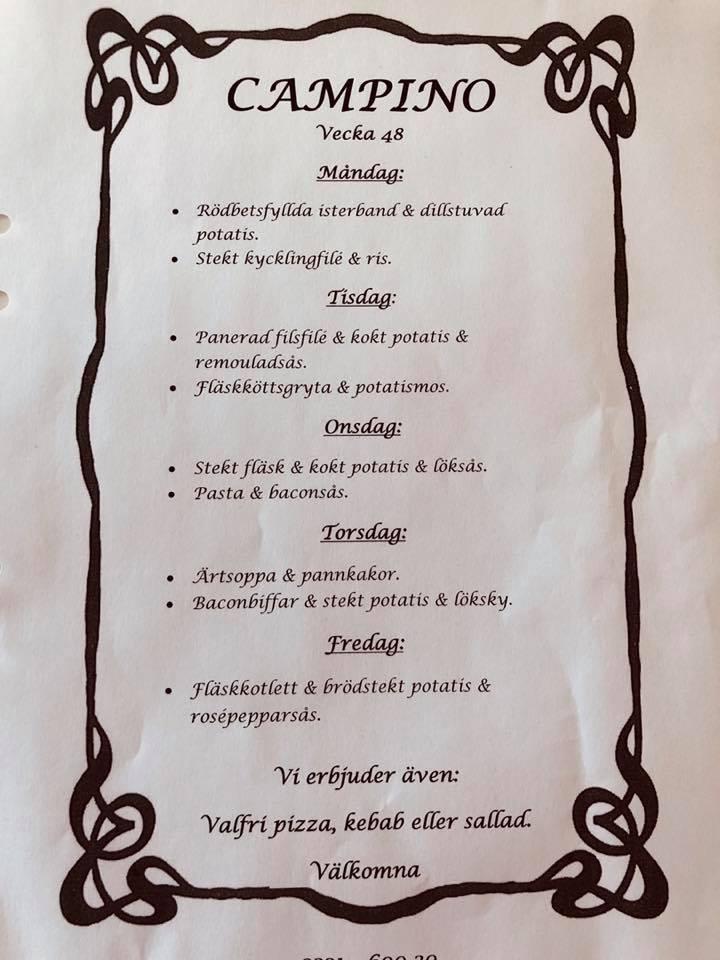 CAMPINO
Vecka 48
Måndag:
• Rödbetsfyllda isterband & dillstuvad
potatis.
• Stekt kycklingfilé & ris.
Tisdag:
• Panerad filsfilé & kokt potatis &
remouladsås.
• Fläskköttsgryta & potatismos.
Onsdag:
• Stekt fläsk & kokt potatis & löksås.
• Pasta & baconsås.
Torsdag:
• Ärtsoppa & pannkakor.
• Baconbiffar & stekt potatis & löksky.
Fredag:
• Fläskkotlett & brödstekt potatis &
rosépepparsås.
Vi erbjuder även:
Valfri pizza, kebab eller sallad.
Välkomna